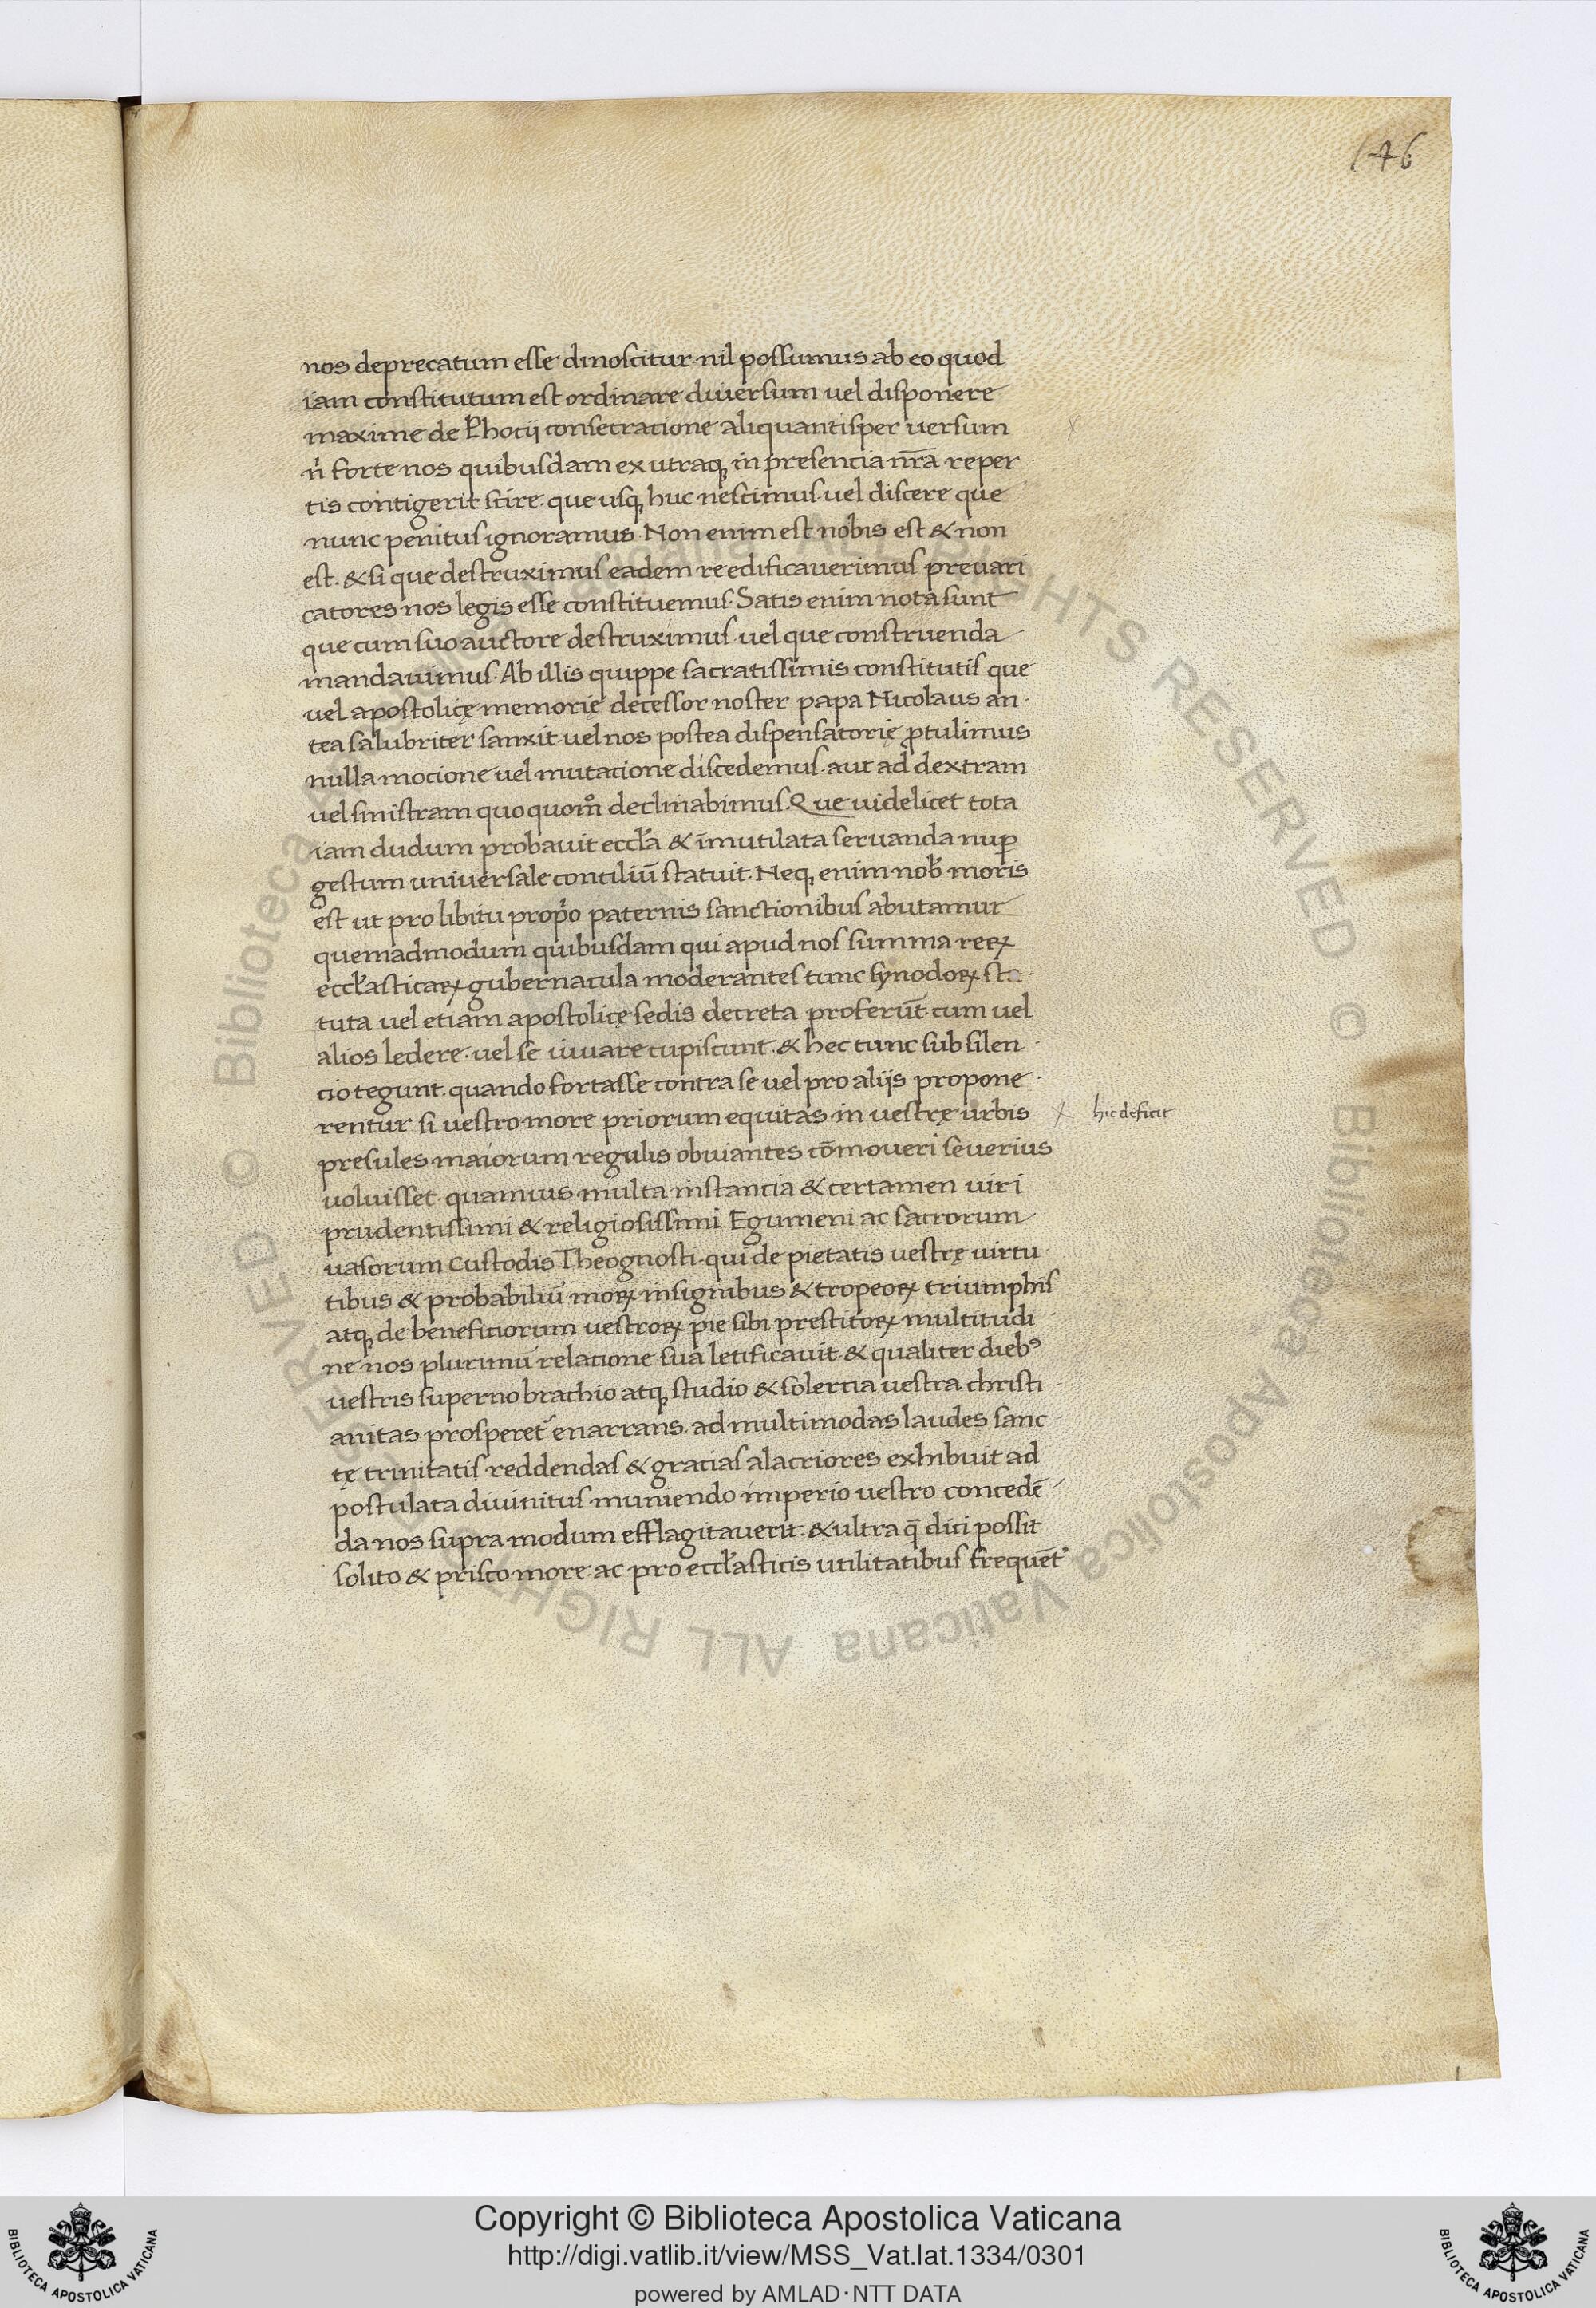 146
nos deprecatum esse dinoscitur nil possumus ab eo quod
iam constitutum est ordinare diuersum uel disponere
maxime de Photij consecratione aliquantisper uersum
n̍ forte nos quibusdam ex utraq; in presencia nr̄a reper
tis contigerit scire. que usq; huc nescimus uel discere que
nunc penitus ignoramus. Non enim est nobis est & non
est. & si que destruximus eadem reedificauerimus preuari
catores nos legis esse constituemus. Satis enim nota sunt
que cum suo auctore destruximus uel que construenda
mandauimus. Ab illis quippe sacratissimis constitutis que
uel apostolicę memorię decessor noster papa Nicolaus an
tea salubriter sanxit uel nos postea dispensatorię ꝓtulimus
nulla mocione uel mutacione discedemus. aut ad dextram
uel sinistram quoquom̊ declinabimus. Que uidelicet tota
iam dudum probauit eccl̄a & īmutilata seruanda nuꝑ
gestum uniuersale conciliū statuit. Neq; enim nob̄ moris
est ut pro libitu prop̍o paternis sanctionibus abutamur
quemadmodum quibusdam qui apud nos summa reꝝ
eccl̄asticaꝝ gubernacula moderantes tunc synodoꝝ sta
tuta uel etiam apostolicę sedis decreta proferūt cum uel
alios ledere. uel se iuuare cupiscunt. & hec tunc sub silen
cio tegunt. quando fortasse contra se uel pro alijs propone
rentur si uestro more priorum equitas in uestrę urbis
hic deficit
presules maiorum regulis obuiantes cōmoueri seuerius
uoluisset quamuis multa instancia & certamen uiri
prudentissimi & religiosissimi Egumeni ac sacrorum
uasorum Custodis Theognosti. qui de pietatis uestrę uirtu
tibus & probabiliū moꝝ insignibus & tropeoꝝ triumphis
atq; de beneficiorum uestroꝝ pie sibi prestitoꝝ multitudi
ne nos plurimū relatione sua letificauit & qualiter diebꝰ
uestris superno brachio atq; studio & solercia uestra christi
anitas prosperet᷑ enarrans. ad multimodas laudes sanc
tę trinitatis reddendas & gracias alacriores exhibuit ad
postulata diuinitus muniendo imperio uestro concedē
da nos supra modum efflagitauerit. & ultra q̄ dici possit
solito & prisco more. ac pro eccl̄asticis utilitatibus frequēt᷑
Copyright © Biblioteca Apostolica Vaticana
http://digi.vatlib.it/view/MSS_Vat.lat.1334/0301
powered by AMLAD·NTT DATA